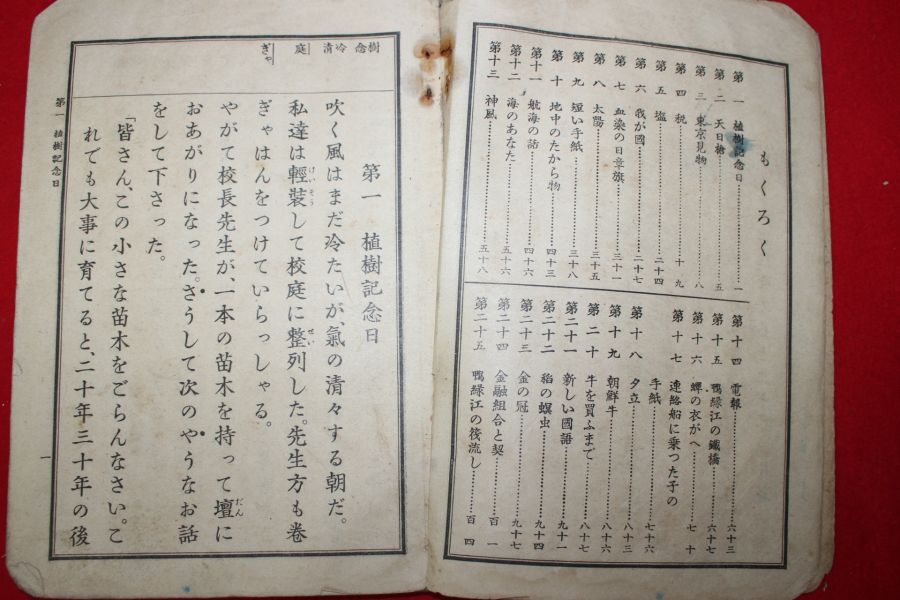 もくろく
第一 植樹記念日……一
第二 天日槍……五
第三 東京見物……八
第四 税……十九
第五 塩……二十四
第六 我が國……二十七
第七 血染の日章旗……三十一
第八 太陽……三十五
第九 短い手紙……三十八
第十 地中のたから物……四十三
第十一 航海の話……四十六
第十二 海のあなた……五十六
第十三 神風……五十八
第十四 電報……六十三
第十五 鴨緑江の鐵橋……六十七
第十六 蟬の衣がへ……七十
第十七 連絡船に乗つた子の
手紙……七十六
第十八 夕立……八十三
第十九 朝鮮牛……八十六
第二十 牛を買ふまで……八十七
第二十一 新しい國語……九十一
第二十二 稻の螟虫……九十四
第二十三 金の冠……九十七
第二十四 金融組合と契……百一
第二十五 鴨緑江の筏流し……百四
樹 念 冷 清 庭 ぎゃ
第一 植樹記念日
吹く風はまだ冷たいが、氣の清々する朝だ。
私達は輕装して校庭に整列した。先生方も巻
ぎゃはんをつけていらっしゃる。
やがて校長先生が、一本の苗木を持って壇に
おあがりになった。さうして次のやうなお話
をして下さった。
「皆さん、この小さな苗木をごらんなさい。こ
れでも大事に育てると、二十年三十年の後
第一 植樹記念日
一